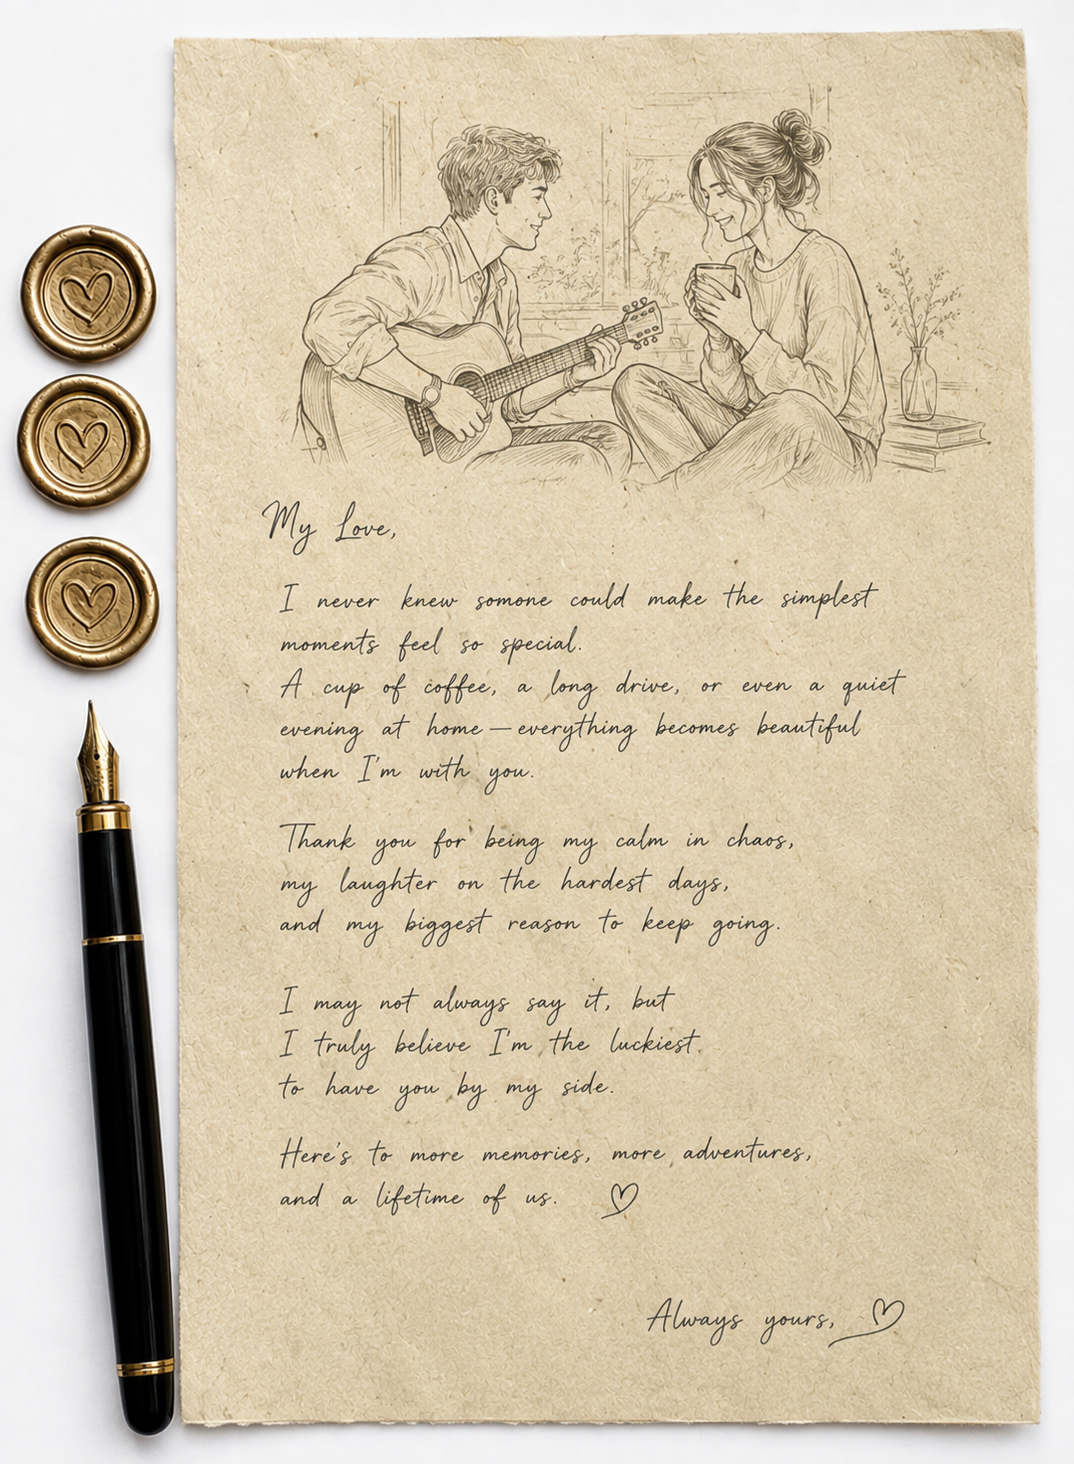 My Love,
I never knew somone could make the simplest
moments feel so special.
A cup of coffee, a long drive, or even a quiet
evening at home — everything becomes beautiful
when I'm with you.
Thank you for being my calm in chaos,
my laughter on the hardest days,
and my biggest reason to keep going.
I may not always say it, but
I truly believe I'm the luckiest
to have you by my side.
Here's to more memories, more adventures,
and a lifetime of us.
Always yours,